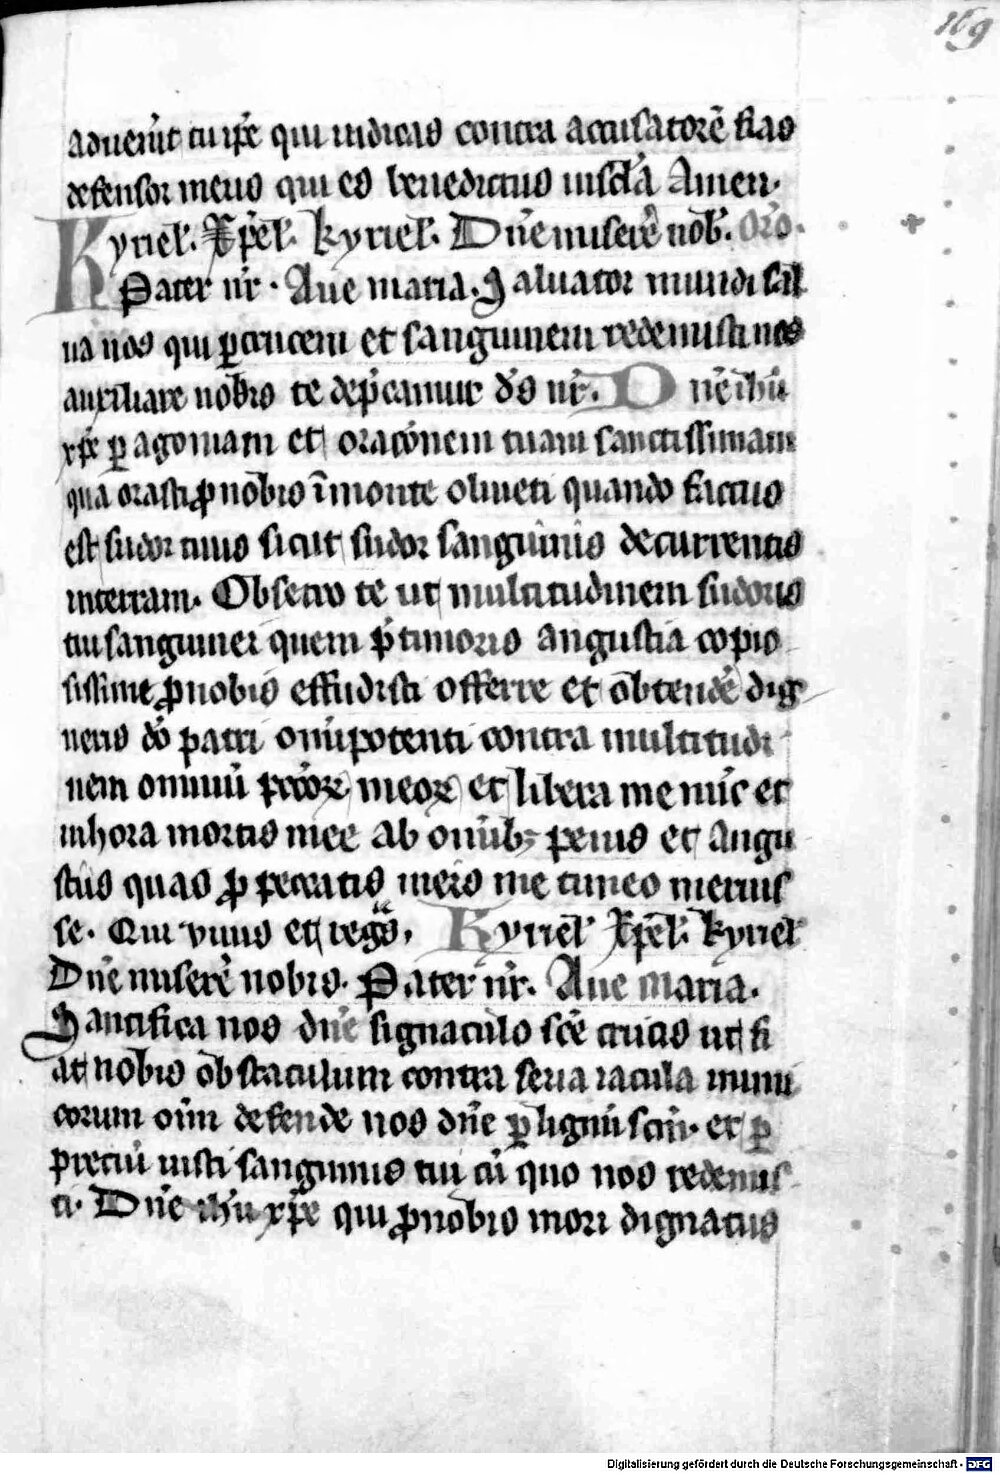 169
aduen̄it tu ip̄e qui iudicas contra accusatorē fias
defensor meus qui es benedictus in sc̄la Amen.
Kyriel̄. Xp̄el̄. kyriel̄. Dn̄e miserē nob̄. Or̄o.
Pater nr̄. Aue maria. Saluator mundi sal
ua nos qui ꝑ crucem et sanguinem redemisti nos
auxiliare nobis te dep̄camur ds̄ nr̄. Dn̄e ih̄u
xp̄e ꝑ agoniam et orac̄onem tuam sanctissimam
qua orasti ꝓ nobis ī monte oliueti quando factus
est sudor tuus sicut sudor sanguinis decurrentis
in terram. Obsecro te ut multitudinem sudoris
tui sanguinei quem p̄ timoris angustia copio
sissime ꝓ nobis effudisti offerre et obtendē dig
neris do̅ patri om̄ipotenti contra multitudi
nem omniū pctōꝝ meoꝝ et libera me nūc et
in hora mortis mee ab om̄ibꝫ penis et angu
stiis quas ꝓ peccatis meis me timeo meruis
se. Qui viuis et regs̄. Kyriel̄ Xp̄el̄. kyriel̄
Dn̄e miserē nobis. Pater nr̄. Aue maria.
Sanctifica nos dn̄e signaculo sc̄e crucis ut fi
at nobis obstaculum contra seua iacula inimi
corum oīm defende nos dn̄e ꝑ lignū sc̄m. et ꝑ
preciū iusti sanguinis tui cū quo nos redemis
ti. Dn̄e ih̄u xp̄e qui ꝓ nobis mori dignatus
Digitalisierung gefördert durch die Deutsche Forschungsgemeinschaft - DFG